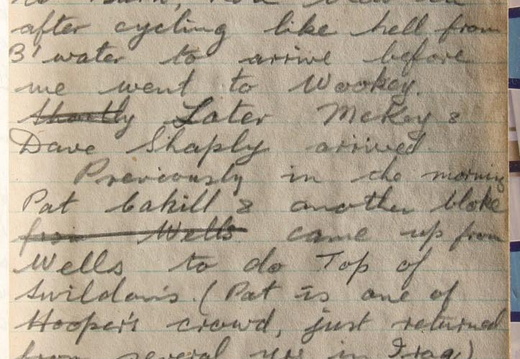 after cycling like hell from
B'water to arrive before
me went to Wookey.
Shortly Later McKey &
Dave Shaply arrived
Previously in the morning
Pat Cahill & another bloke
from Wells came up from
Wells to do Top of
Swildon's. (Pat is one of
Hooper's crowd, just returned
from several yrs in Iraq)